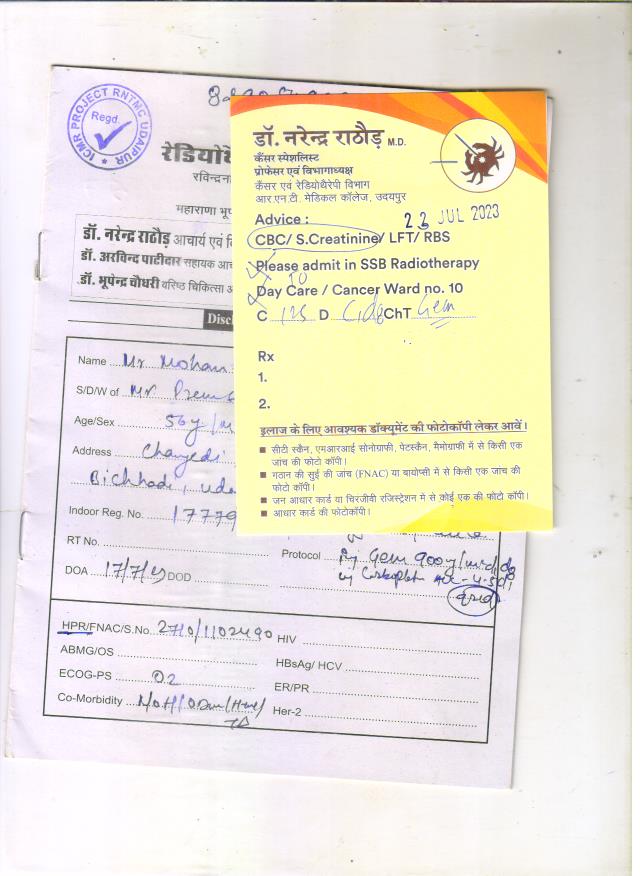 ICMR PROJECT RNTMC UDAIPUR
Regd.
रेडियोथै
रविन्द्रना
महाराणा भूप
डॉ. नरेन्द्र राठौड़ आचार्य एवं वि
डॉ. अरविन्द पाटीदार सहायक आच
डॉ. भूपेन्द्र चौधरी वरिष्ठ चिकित्सा अ
Disc
Name Mr Mohan
S/D/W of Mr Prem
Age/Sex 56y/m
Address
Bichhadi, uda
Indoor Reg. No. 17779
RT No.
Protocol Inj Gem 900
DOA 17/7/ DOD
HPR/FNAC/S.No. 2710/1102490 HIV
ABMG/OS
HBsAg/ HCV
ECOG-PS 02
ER/PR
Co-Morbidity
Her-2
डॉ. नरेन्द्र राठौड़ M.D.
कैंसर स्पेशलिस्ट
प्रोफेसर एवं विभागाध्यक्ष
कैंसर एवं रेडियोथैरेपी विभाग
आर.एन.टी. मेडिकल कॉलेज, उदयपुर
Advice :
JUL 2023
CBC/ S.Creatinine/ LFT/ RBS
Please admit in SSB Radiotherapy
10
Day Care / Cancer Ward no. 10
C 125 D C1d8 ChT Gem
Rx
1.
2.
इलाज के लिए आवश्यक डॉक्यूमेंट की फोटोकॉपी लेकर आवें।
सीटी स्कैन, एमआरआई सोनोग्राफी, पेटस्कैन, मैमोग्राफी में से किसी एक
जांच की फोटो कॉपी।
गठान की सुई की जांच (FNAC) या बायोप्सी में से किसी एक जांच की
फोटो कॉपी।
जन आधार कार्ड या चिरंजीवी रजिस्ट्रेशन में से कोई एक की फोटो कॉपी।
आधार कार्ड की फोटोकॉपी।